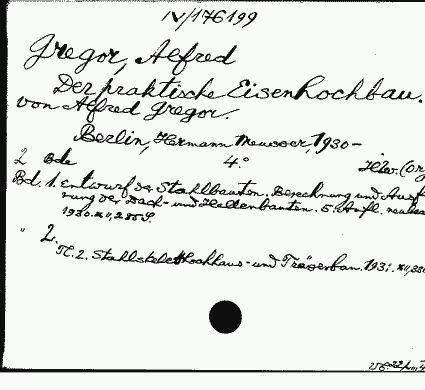 IV/176199
Gregor, Alfred
Der praktische Eisenhochbau.
von Alfred Gregor.
Berlin, Hermann Meusser, 1930-
2 Bde 4.°
Bd. 1. Entwurf der Stahlbauten. Berechnung und Ausfü
rung der Dach- und Hallenbauten. 5. Aufl.
1930. XII, 285 S.
" 2.
Tl. 2. Stahlskelett Hochhaus- und Trägerbau. 193